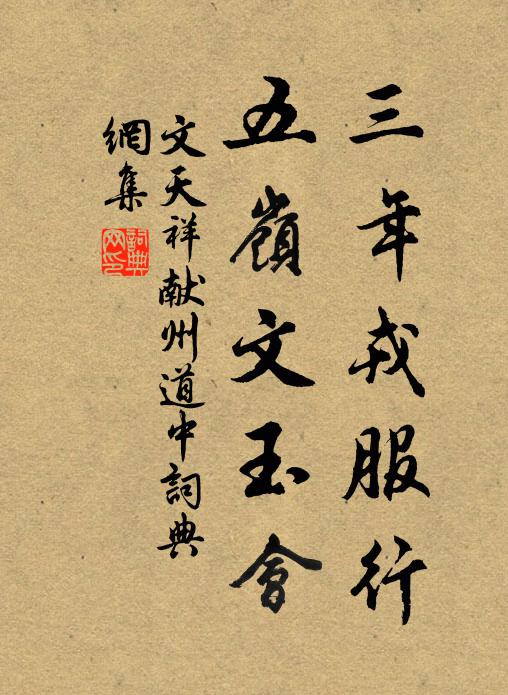 三年戎服行
五嶺文玉會
文天祥献州道中詞典
網集
詞典網印